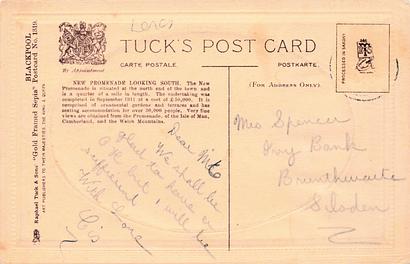 Lancs
TUCK'S POST CARD
CARTE POSTALE.
POSTKARTE.
(FOR ADDRESS ONLY)
By Appointment
NEW PROMENADE LOOKING SOUTH. The New
Promenade is situated at the north end of the town and
is a quarter of a mile in length. The undertaking was
completed in September 1911 at a cost of £50,000. It is
comprised of ornamental gardens and terraces and has
seating accommodation for over 30,000 people. Very fine
views are obtained from the Promenade, of the Isle of Man,
Cumberland, and the Welsh Mountains.
BLACKPOOL
Raphael Tuck & Sons' "Gold Framed Sepia" Postcard No. 1519.
ART PUBLISHERS TO THEIR MAJESTIES THE KING & QUEEN
PROCESSED IN SAXONY
Dear Mrs
We shall be
glad to have
OK but I will be
sufficient
With Love
Cis
Mrs Spencer
Ivy Bank
Brunthwaite
Silsden